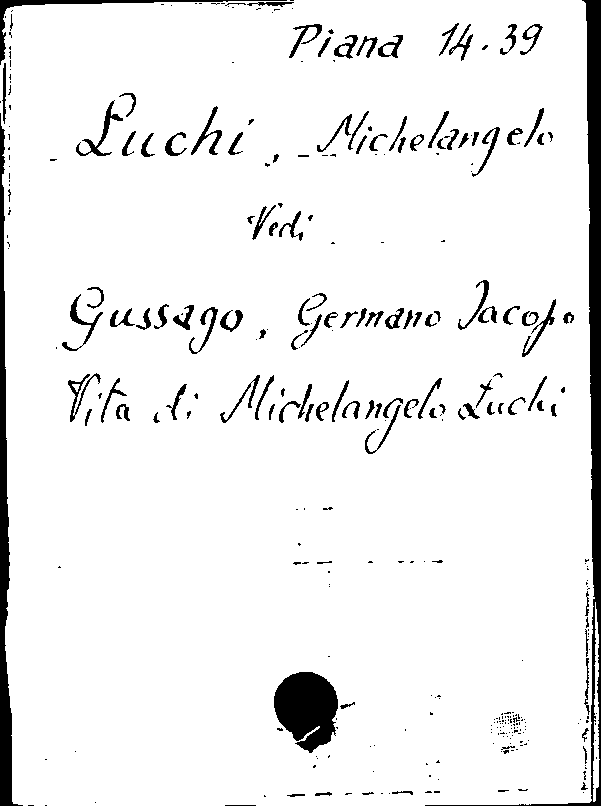 Piana 14.39
Luchi, Michelangelo
Vedi
Gussago, Germano Jacopo
Vita di Michelangelo Luchi